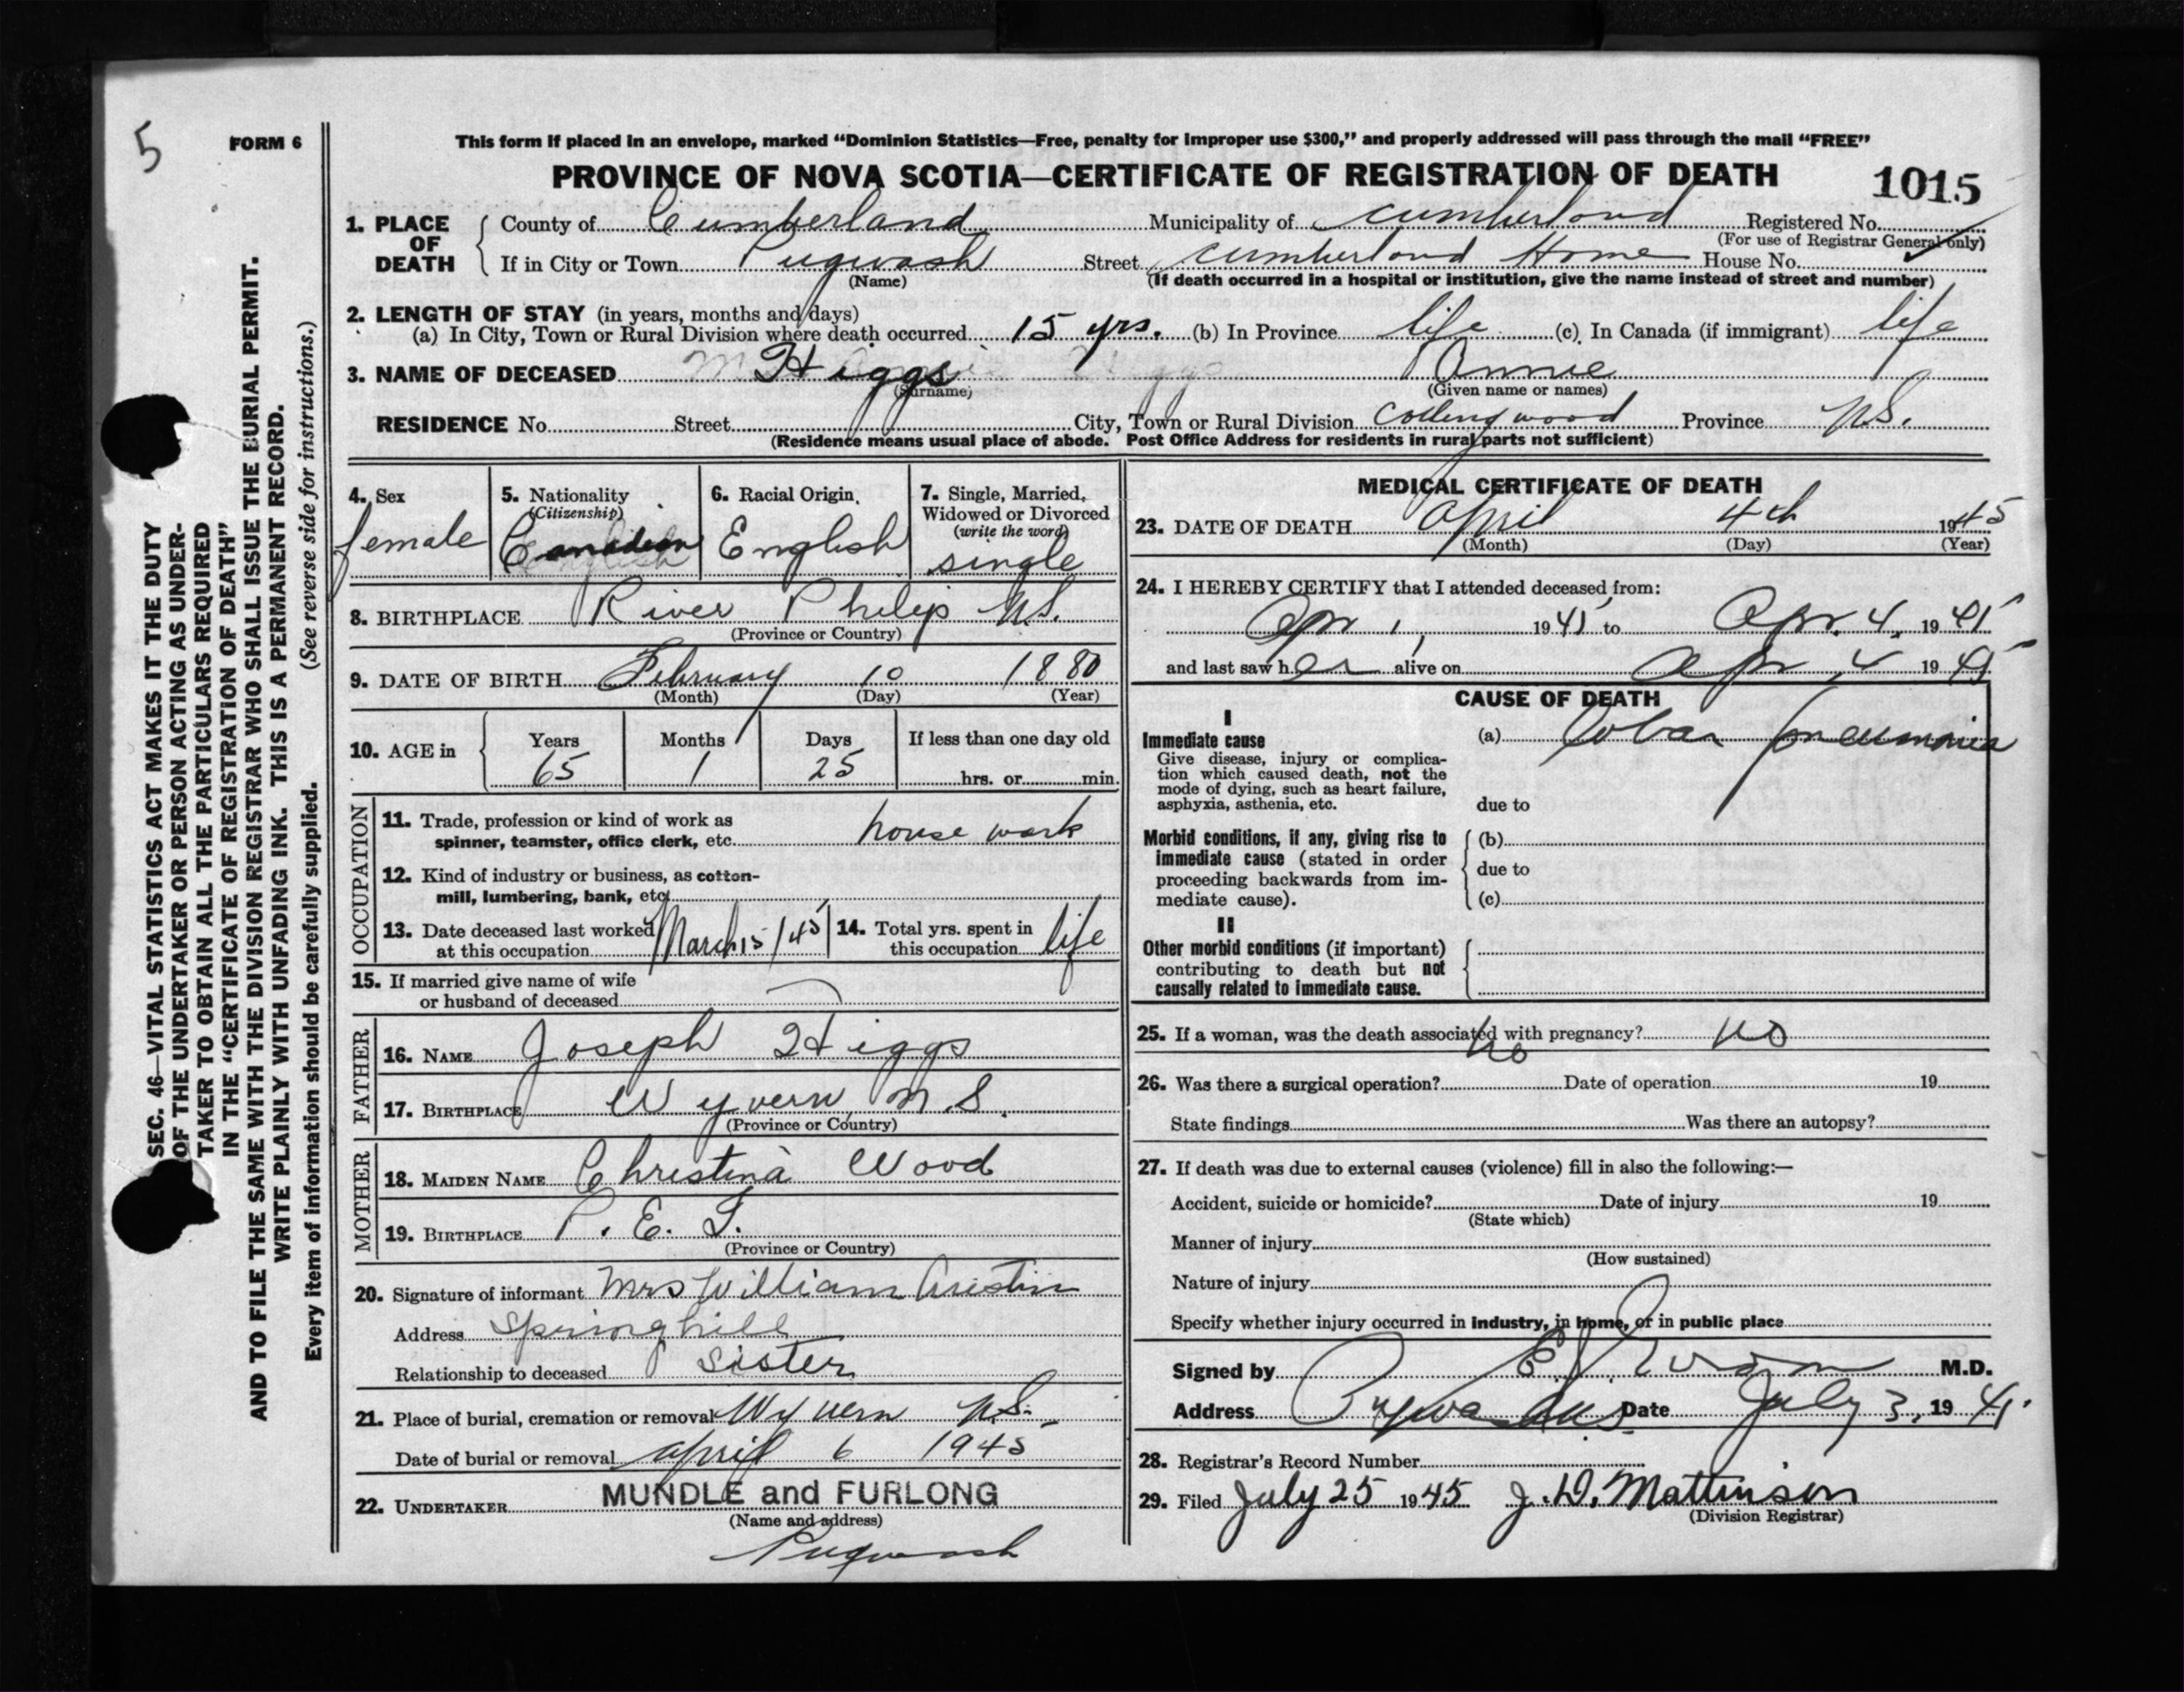 5
FORM 6
This form if placed in an envelope, marked “Dominion Statistics—Free, penalty for improper use $300,” and properly addressed will pass through the mail “FREE”
PROVINCE OF NOVA SCOTIA—CERTIFICATE OF REGISTRATION OF DEATH
1015
1. PLACE OF DEATH
County of Cumberland Municipality of Cumberland Registered No.
(For use of Registrar General only)
If in City or Town Pugwash Street Cumberland Home House No.
(Name) (If death occurred in a hospital or institution, give the name instead of street and number)
2. LENGTH OF STAY (in years, months and days)
(a) In City, Town or Rural Division where death occurred 15 yrs. (b) In Province life (c) In Canada (if immigrant) life
3. NAME OF DECEASED Higgs Annie
(Surname) (Given name or names)
RESIDENCE No. Street City, Town or Rural Division Collingwood Province N.S.
(Residence means usual place of abode. Post Office Address for residents in rural parts not sufficient)
4. Sex
female
5. Nationality
(Citizenship)
Canadian
6. Racial Origin
English
7. Single, Married,
Widowed or Divorced
(write the word)
single
8. BIRTHPLACE River Philip N.S.
(Province or Country)
9. DATE OF BIRTH February 10 1880
(Month) (Day) (Year)
10. AGE in
Years Months Days If less than one day old
65 1 25 hrs. or min.
OCCUPATION
11. Trade, profession or kind of work as
spinner, teamster, office clerk, etc. house work
12. Kind of industry or business, as cotton-
mill, lumbering, bank, etc.
13. Date deceased last worked
at this occupation March 15/45
14. Total yrs. spent in
this occupation life
15. If married give name of wife
or husband of deceased
FATHER
16. NAME Joseph Higgs
17. BIRTHPLACE Wyvern, N.S.
(Province or Country)
MOTHER
18. MAIDEN NAME Christina Wood
19. BIRTHPLACE P. E. I.
(Province or Country)
20. Signature of informant Mrs William Austin
Address Springhill
Relationship to deceased Sister
21. Place of burial, cremation or removal Wyvern N.S.
Date of burial or removal April 6 1945
22. UNDERTAKER MUNDLE and FURLONG
(Name and address)
Pugwash
MEDICAL CERTIFICATE OF DEATH
23. DATE OF DEATH April 4th 1945
(Month) (Day) (Year)
24. I HEREBY CERTIFY that I attended deceased from:
Apr 1, 1945 to Apr. 4, 1945
and last saw her alive on Apr 4 1945
CAUSE OF DEATH
I
Immediate cause
Give disease, injury or complica-
tion which caused death, not the
mode of dying, such as heart failure,
asphyxia, asthenia, etc.
(a) Lobar pneumonia
due to
Morbid conditions, if any, giving rise to
immediate cause (stated in order
proceeding backwards from im-
mediate cause).
(b)
due to
(c)
II
Other morbid conditions (if important)
contributing to death but not
causally related to immediate cause.
25. If a woman, was the death associated with pregnancy? no
26. Was there a surgical operation? no Date of operation 19
State findings Was there an autopsy?
27. If death was due to external causes (violence) fill in also the following:—
Accident, suicide or homicide? Date of injury 19
(State which)
Manner of injury
(How sustained)
Nature of injury
Specify whether injury occurred in industry, in home, or in public place
Signed by M.D.
Address Pugwash NS Date July 3, 194
28. Registrar's Record Number
29. Filed July 25 1945 J. D. Mattinson
(Division Registrar)
SEC. 46—VITAL STATISTICS ACT MAKES IT THE DUTY
OF THE UNDERTAKER OR PERSON ACTING AS UNDER-
TAKER TO OBTAIN ALL THE PARTICULARS REQUIRED
IN THE “CERTIFICATE OF REGISTRATION OF DEATH”
AND TO FILE THE SAME WITH THE DIVISION REGISTRAR WHO SHALL ISSUE THE BURIAL PERMIT.
WRITE PLAINLY WITH UNFADING INK. THIS IS A PERMANENT RECORD.
Every item of information should be carefully supplied. (See reverse side for instructions.)